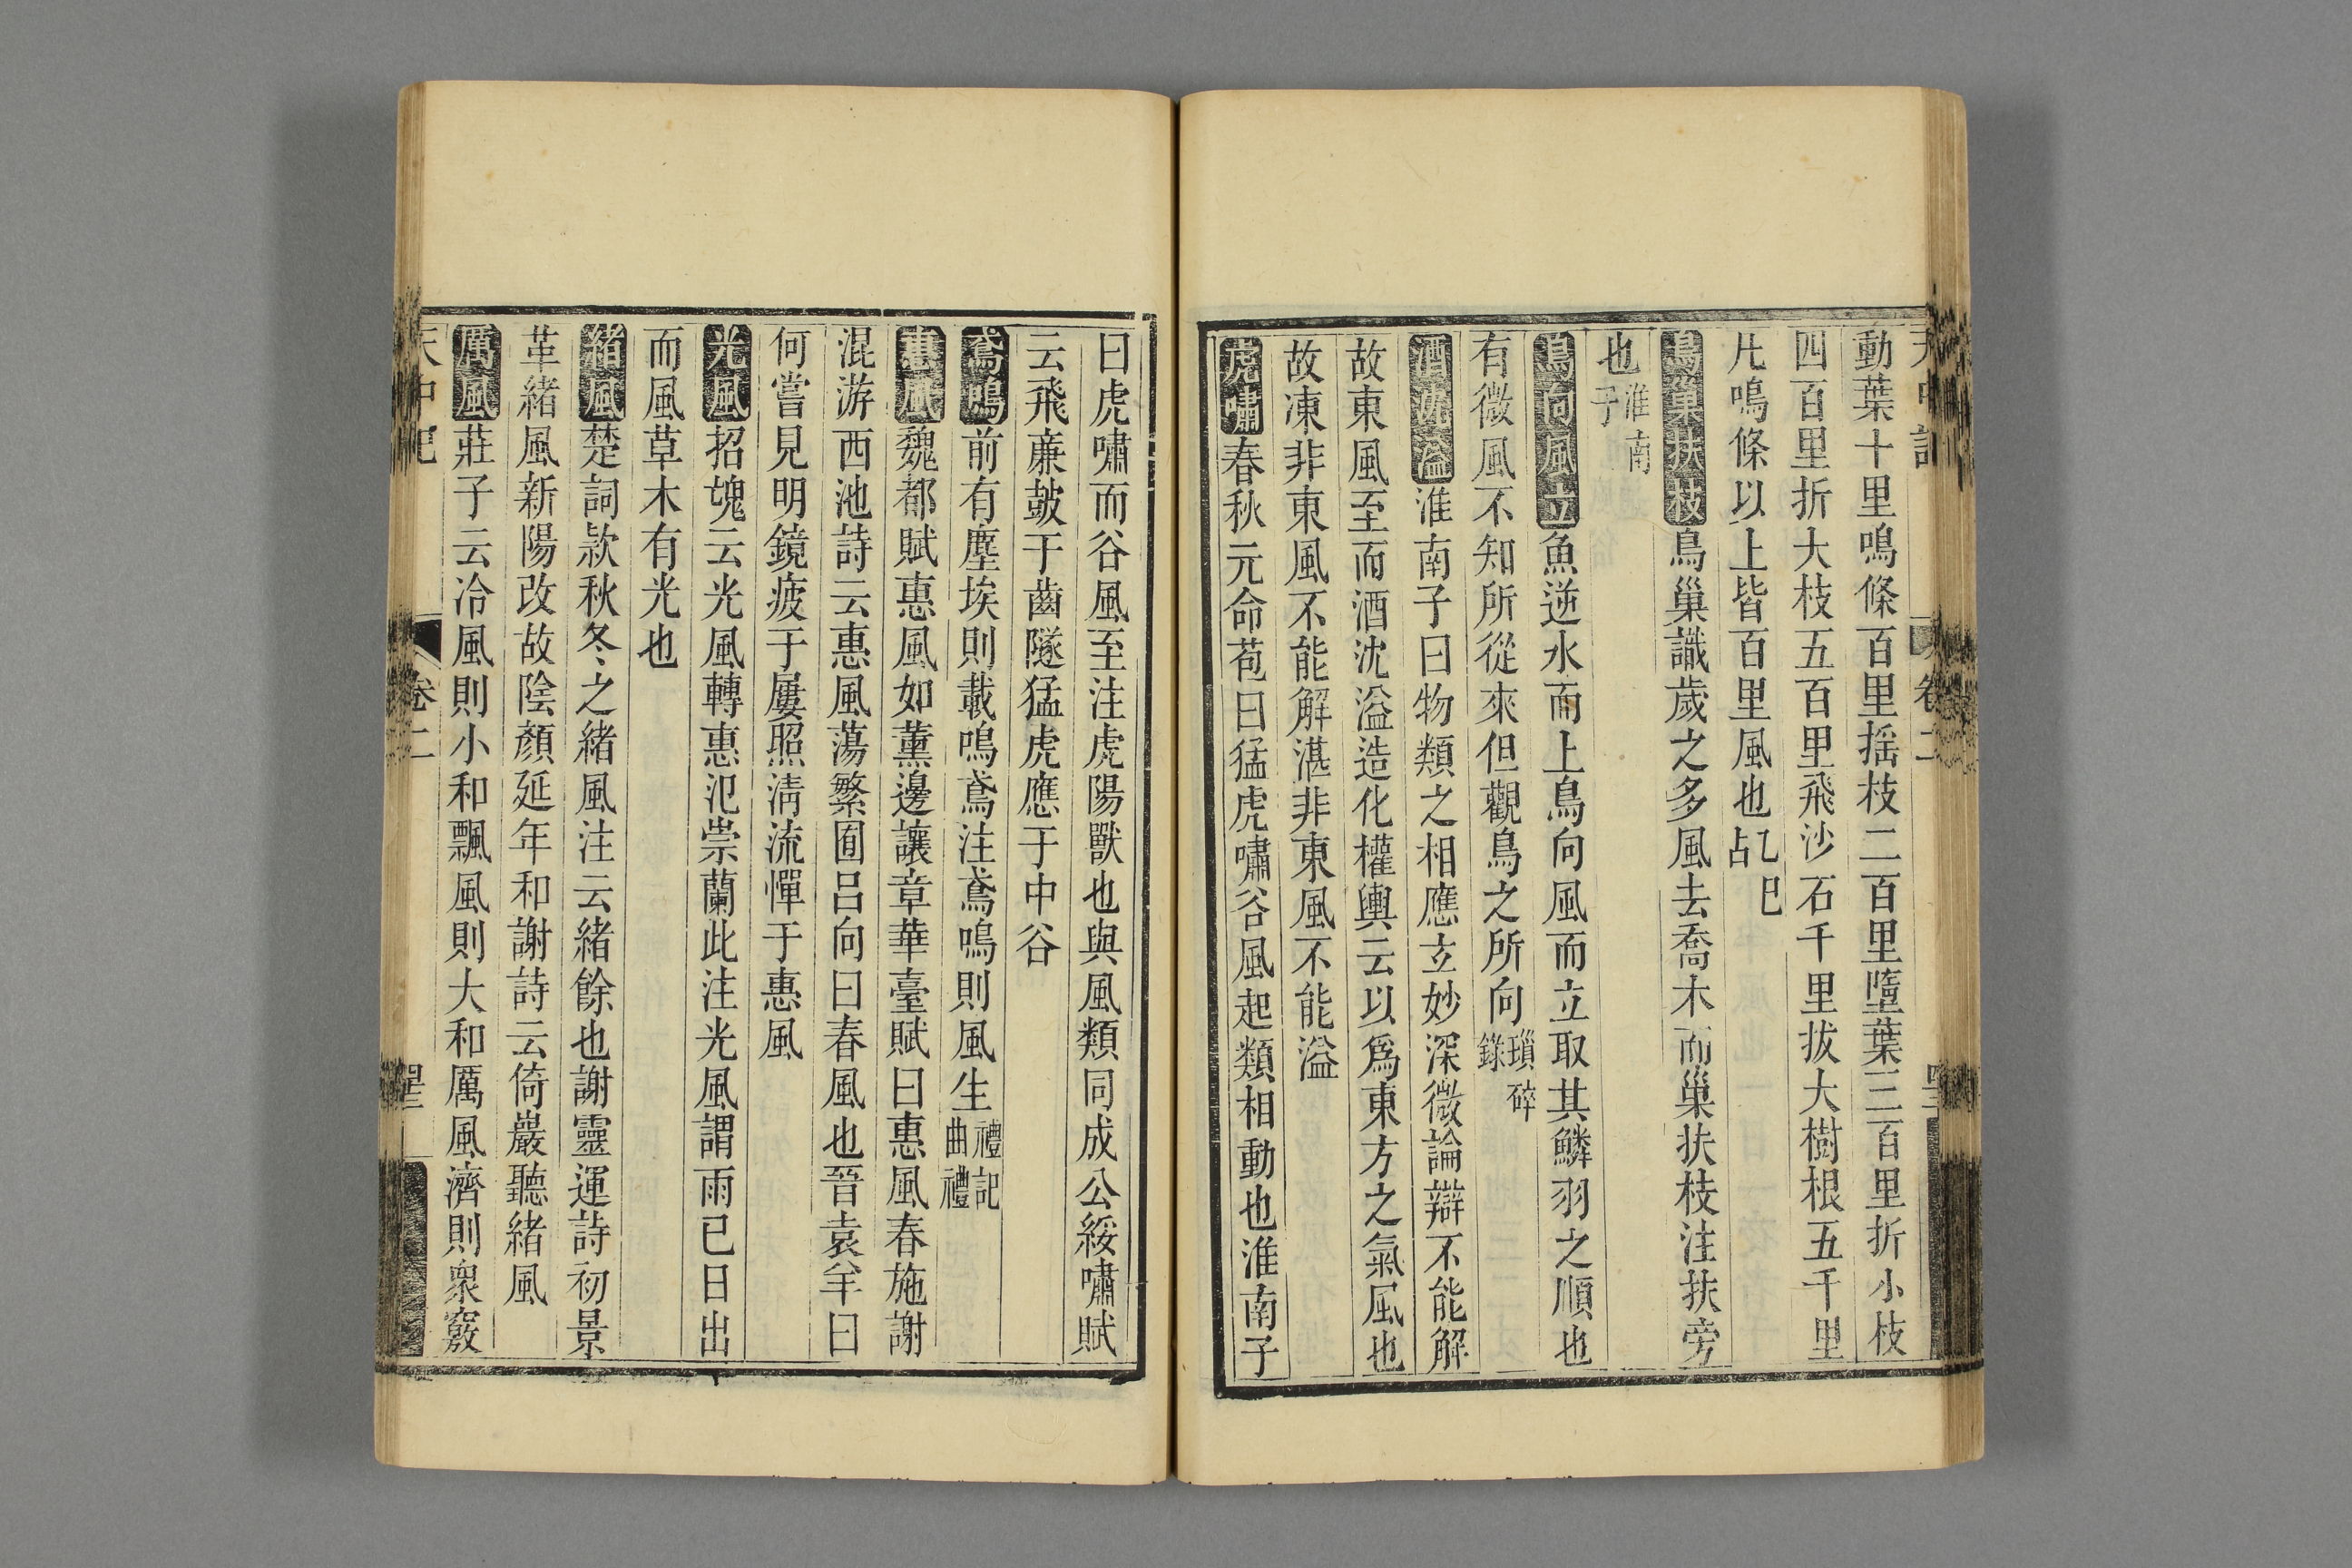 動葉十里鳴條百里搖枝二百里墮葉三百里折小枝
四百里折大枝五百里飛沙石千里拔大樹根五千里
凡鳴條以上皆百里風也乙巳占
鳥巢扶枝鳥巢識歲之多風去喬木而巢扶枝注扶旁
也淮南子
鳥向風立魚逆水而上鳥向風而立取其鱗羽之順也
有微風不知所從來但觀鳥之所向瑣碎錄
酒沈溢淮南子曰物類之相應玄妙深微論辯不能解
故東風至而酒沈溢造化權輿云以爲東方之氣風也
故凍非東風不能解湛非東風不能溢
虎嘯春秋元命苞曰猛虎嘯谷風起類相動也淮南子
曰虎嘯而谷風至注虎陽獸也與風類同成公綏嘯賦
云飛廉皷于幽隧猛虎應于中谷
鳶鳴前有塵埃則載鳴鳶注鳶鳴則風生禮記曲禮
惠風魏都賦惠風如薰邊讓章華臺賦曰惠風春施謝
混游西池詩云惠風蕩繁囿呂向曰春風也晉袁羊曰
何嘗見明鏡疲于屢照淸流憚于惠風
光風招魂云光風轉惠氾崇蘭此注光風謂雨已日出
而風草木有光也
緒風楚詞欵秋冬之緒風注云緒餘也謝靈運詩初景
革緒風新陽改故陰顏延年和謝詩云倚巖聽緒風
厲風莊子云泠風則小和飄風則大和厲風濟則衆竅
天中記
卷二